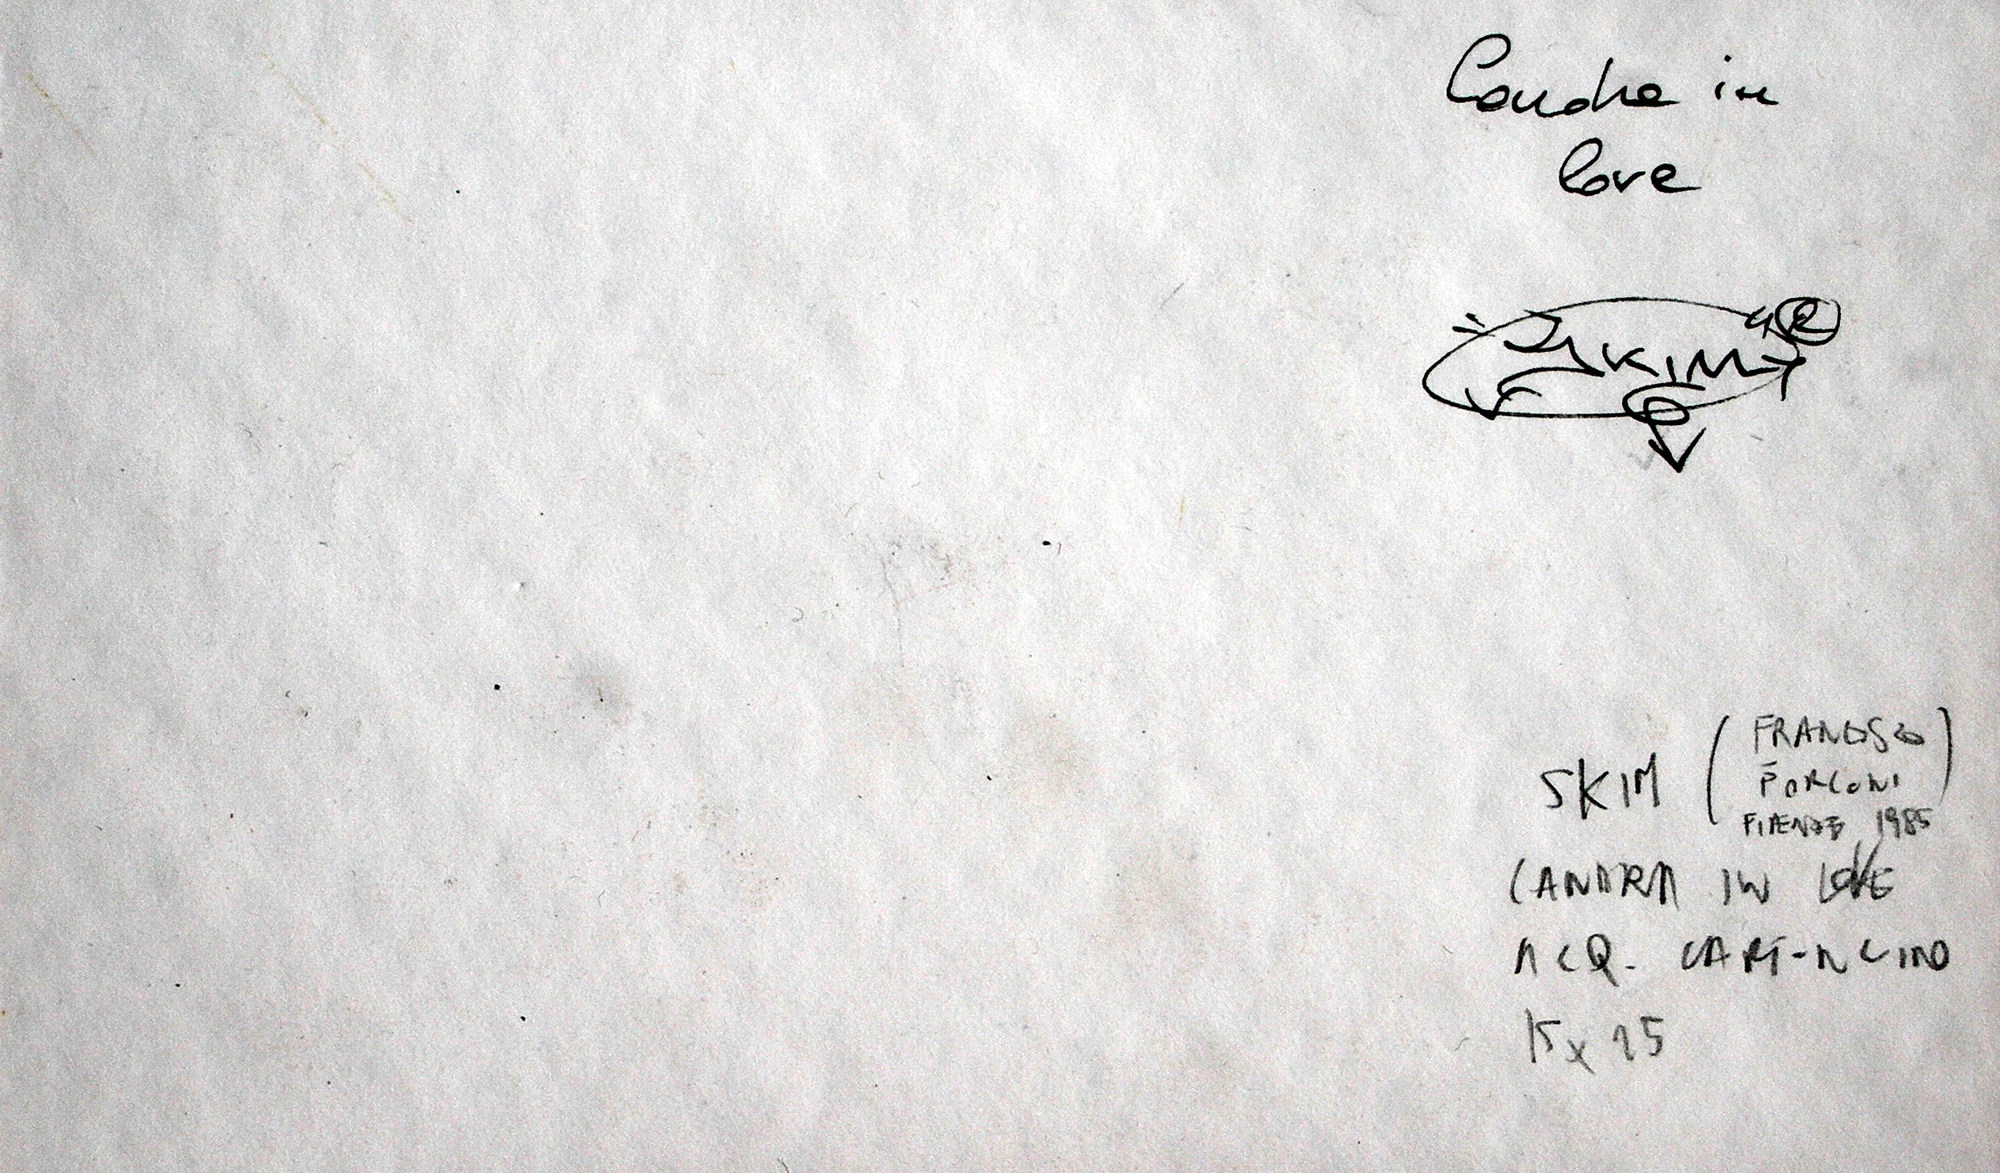 Candra in
love
SKIM
R
SKIM (FRANCESCO
FORCONI)
FIRENZE, 1985
CANDRA IN LOVE
ACQ. CARTONCINO
15 x 25